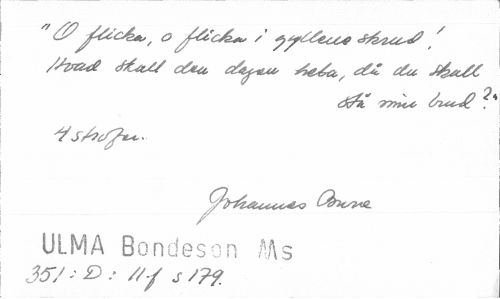 "O flicka, o flicka i gyllene skrud!
Hvad skall den dagen heta, då du skall
stå min brud?"
4 strofer.
Johannes
ULMA Bondeson Ms
351:D:11f s 179.